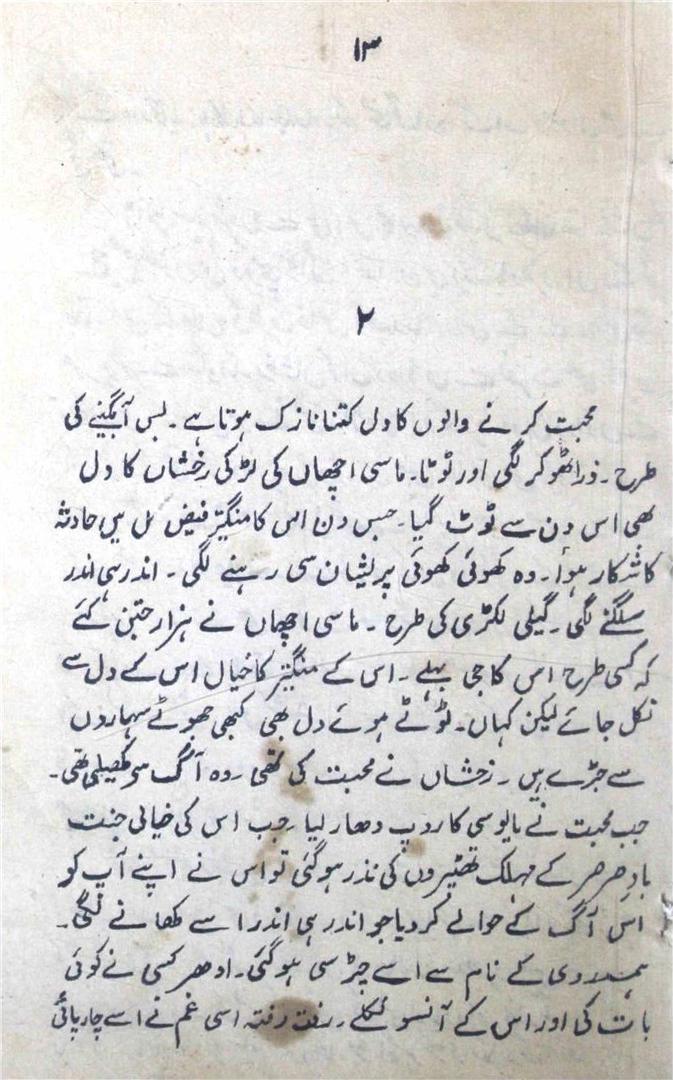 ۱۳
۲
محبت کرنے والوں کا دل کتنا نازک ہوتا ہے۔ بس آبگینے کی
طرح۔ ذرا ٹھوکر لگی اور ٹوٹا۔ ماسی اچھاں کی لڑکی رخشاں کا دل
بھی اس دن سے ٹوٹ گیا۔ جس دن اس کا منگیتر فیض مل میں حادثہ
کا شکار ہوا۔ وہ کھوئی کھوئی پریشان سی رہنے لگی۔ اندر ہی اندر
سلگنے لگی۔ گیلی لکڑی کی طرح۔ ماسی اچھاں نے ہزار جتن کئے
کہ کسی طرح اس کا جی بہلے۔ اس کے منگیتر کا خیال اس کے دل سے
نکل جائے لیکن کہاں۔ ٹوٹے ہوئے دل بھی کبھی جھوٹے سہاروں
سے جڑے ہیں۔ رخشاں نے محبت کی تھی۔ وہ آگ سے کھیلی تھی۔
جب محبت نے مایوسی کا روپ دھار لیا۔ جب اس کی خیالی جنت
بادِ صرصر کے مہلک تھپیڑوں کی نذر ہو گئی تو اس نے اپنے آپ کو
اس آگ کے حوالے کر دیا جو اندر ہی اندر اسے کھانے لگی۔
ہمدردی کے نام سے اسے چڑ سی ہو گئی۔ ادھر کسی نے کوئی
بات کی اور اس کے آنسو نکلے۔ رفتہ رفتہ اسی غم نے اسے چارپائی